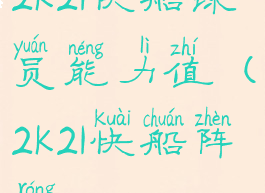 2K21快船球
yuán néng lì zhí
员能力值（
kuài chuán zhèn
2K21快船阵
róng